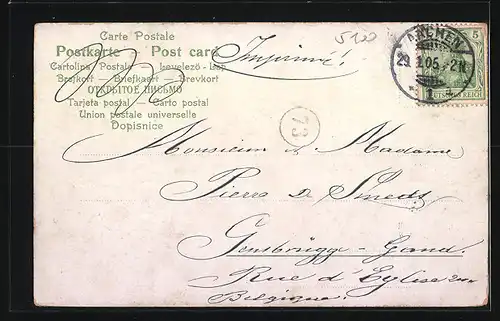 Carte Postale
Postkarte — Post card
Cartolina Postale — Levelező-Lap
Brefkort — Briefkaart — Brevkort
ОТКРЫТОЕ ПИСЬМО
Tarjeta postal — Carto postal
Union postale universelle
Dopisnice
Imprimé!
5
AACHEN
29 05 2-
1
DEUTSCHES REICH
73
Monsieur & Madame
Pierre De Smedt
Gensbrügge - Gand.
Rue d'Eglise
Belgique!